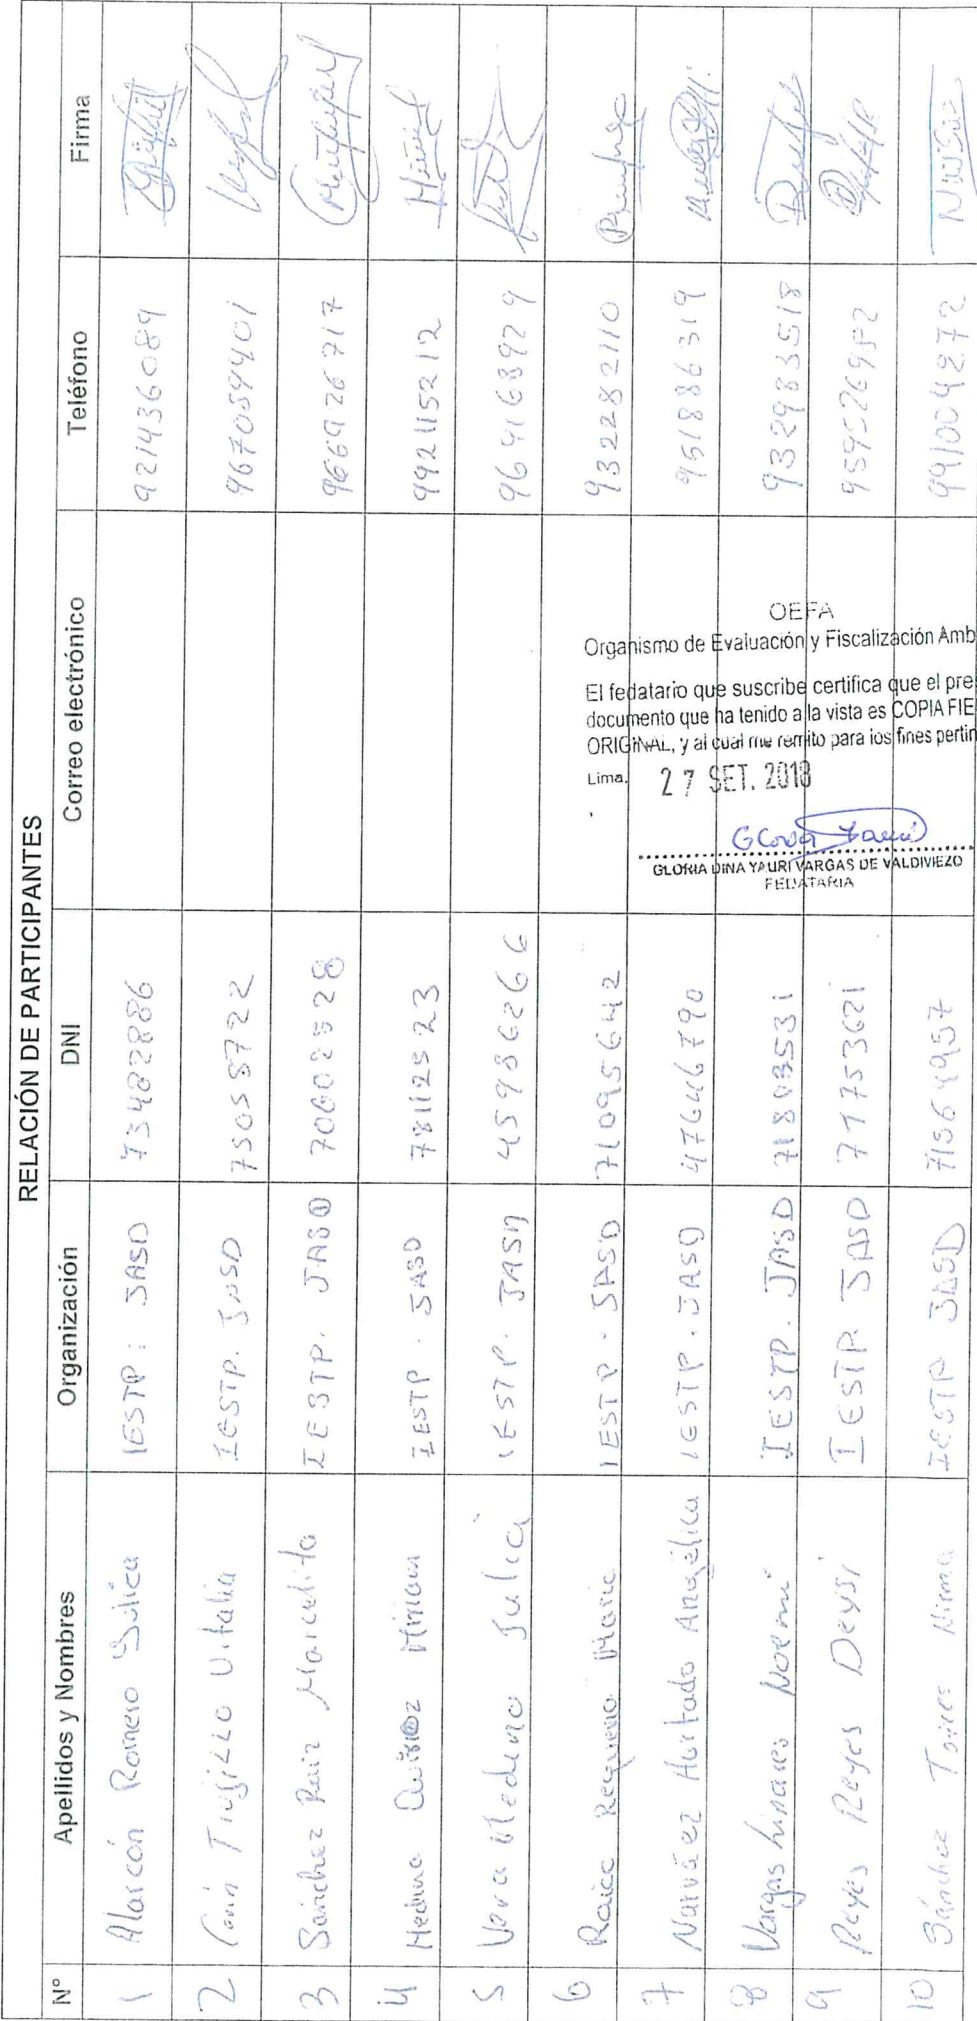 RELACIÓN DE PARTICIPANTES
N° Apellidos y Nombres Organización DNI Correo electrónico Teléfono Firma
1 Alarcón Romero IESTP: JASD 73482886 921436089
2 Trujillo Vitalia IESTP. JASD 75058722 967059401
3 Sánchez Ruiz Marculita IESTP. JASD 70602528 966926717
4 Medina Quiroz Miriam IESTP. JASD 78112523 992115212
5 Vera Medina Julia IESTP. JASD 45986266 964168929
6 Requena Maria IESTP. JASD 71095642 932282110
7 Narváez Hurtado Angélica IESTP. JASD 47646790 951886319
8 Vargas Linares Noemi IESTP. JASD 71803531 932983518
9 Reyes Reyes Deysi IESTP JASD 77753621 959526952
10 Sánchez Torres Nirma IESTP JASD 71564957 991004272
OEFA
Organismo de Evaluación y Fiscalización Amb
El fedatario que suscribe certifica que el pre
documento que ha tenido a la vista es COPIA FIE
ORIGINAL, y al cual me remito para los fines pertin
Lima, 27 SET. 2018
GLORIA DINA YAURI VARGAS DE VALDIVIEZO
FEDATARIA